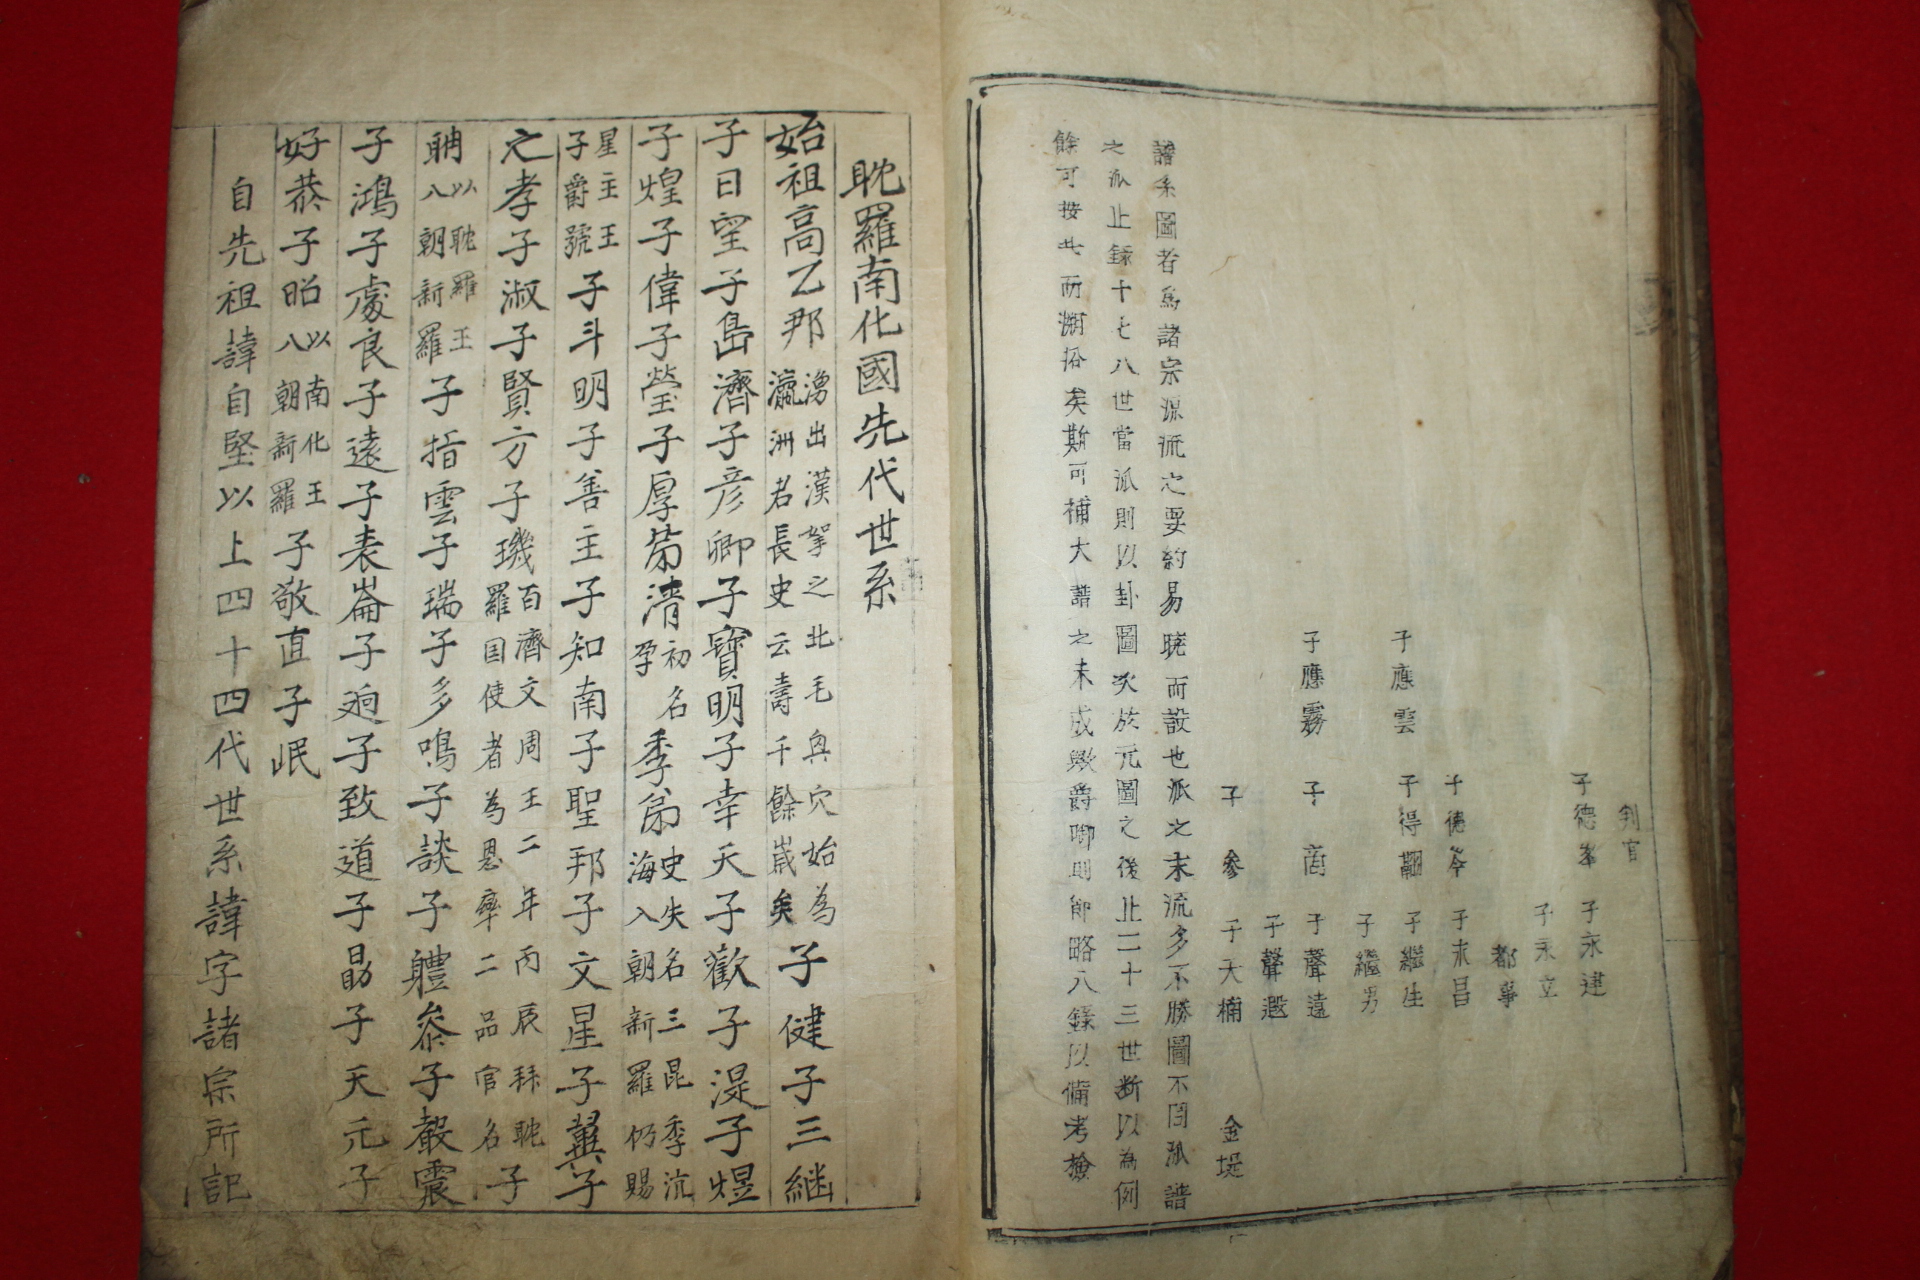 判官
子德峯 子永建
子永立
都事
子德岑 子末昌
子應雲 子得翻 子繼生
子繼男
子應霧 子商 子聲遠
子聲遐
子參 子大楠 金堤
譜系圖者爲諸宗源流之要約易曉而設也派之末流多不勝圖不問派譜
之派止錄十七八世當派則以卦圖次於元圖之後止二十三世断以為例
餘可按此而溯搭矣斯可補大譜之未成歟爵啣則節略八錄以備考檢
耽羅南化國先代世系
始祖高乙那湧出漢拏之北毛興穴始為瀛洲君長史云壽千餘歲矣子健子三継
子日望子島濟子彦卿子寶明子幸天子歡子湜子煜
子煌子偉子瑩子厚苐清初名孕季苐史失名三昆季沆海入朝新羅仍賜
星主王王子爵號子斗明子善主子知南子聖邦子文星子翼子
之孝子淑子賢方子璣百濟文周王二年丙辰拜耽羅国使者為恩率二品官名子
聃以耽羅王八朝新羅子指雲子瑞子多鳴子談子體叅子聲震
子鴻子處良子遠子表崙子逈子致道子勗子天元子
好恭子昭以南化王八朝新羅子敬直子岷
自先祖諱自堅以上四十四代世系諱字諸宗所記